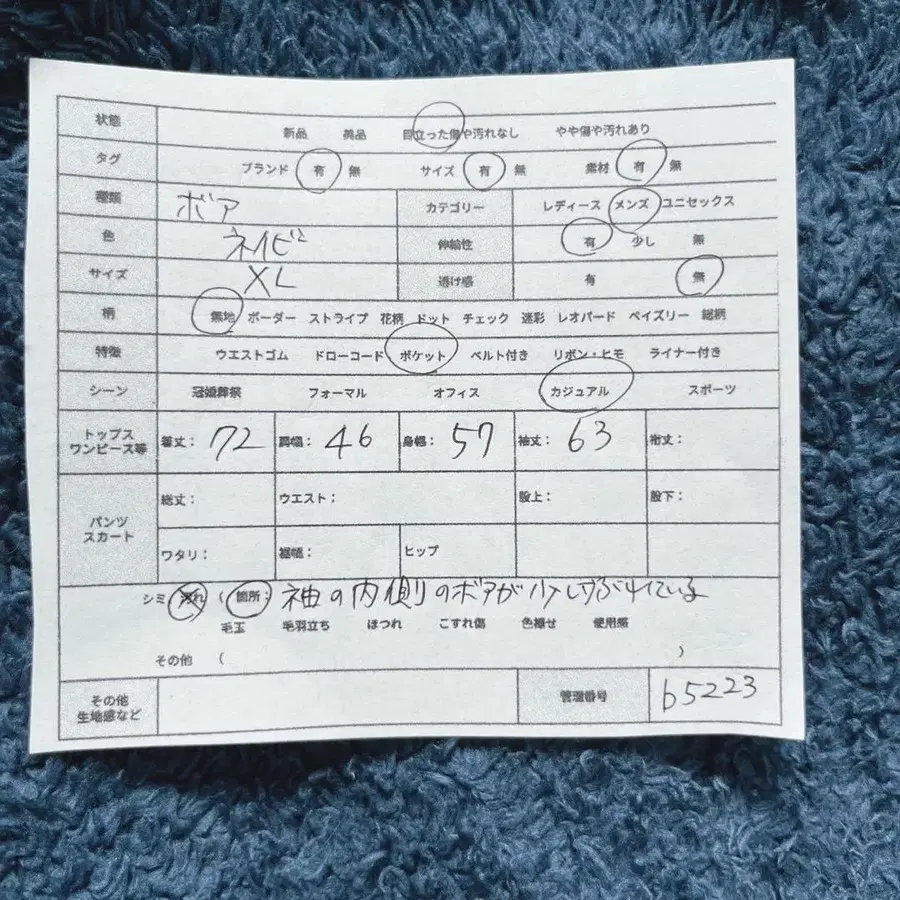 状態 新品 美品 目立った傷や汚れなし やや傷や汚れあり
タグ ブランド 有 無 サイズ 有 無 素材 有 無
種類 ボア カテゴリー レディース メンズ ユニセックス
色 ネイビー 伸縮性 有 少し 無
サイズ XL 透け感 有 無
柄 無地 ボーダー ストライプ 花柄 ドット チェック 迷彩 レオパード ペイズリー 総柄
特徴 ウエストゴム ドローコード ポケット ベルト付き リボン・ヒモ ライナー付き
シーン 冠婚葬祭 フォーマル オフィス カジュアル スポーツ
トップス
ワンピース等 着丈: 72 肩幅: 46 身幅: 57 袖丈: 63 裄丈:
パンツ
スカート 総丈: ウエスト: 股上: 股下:
ワタリ: 裾幅: ヒップ
シミ 汚れ (箇所: 袖の内側のボアが少しつぶれている
毛玉 毛羽立ち ほつれ こすれ傷 色褪せ 使用感
その他 ( )
その他
生地感など 管理番号 b5223